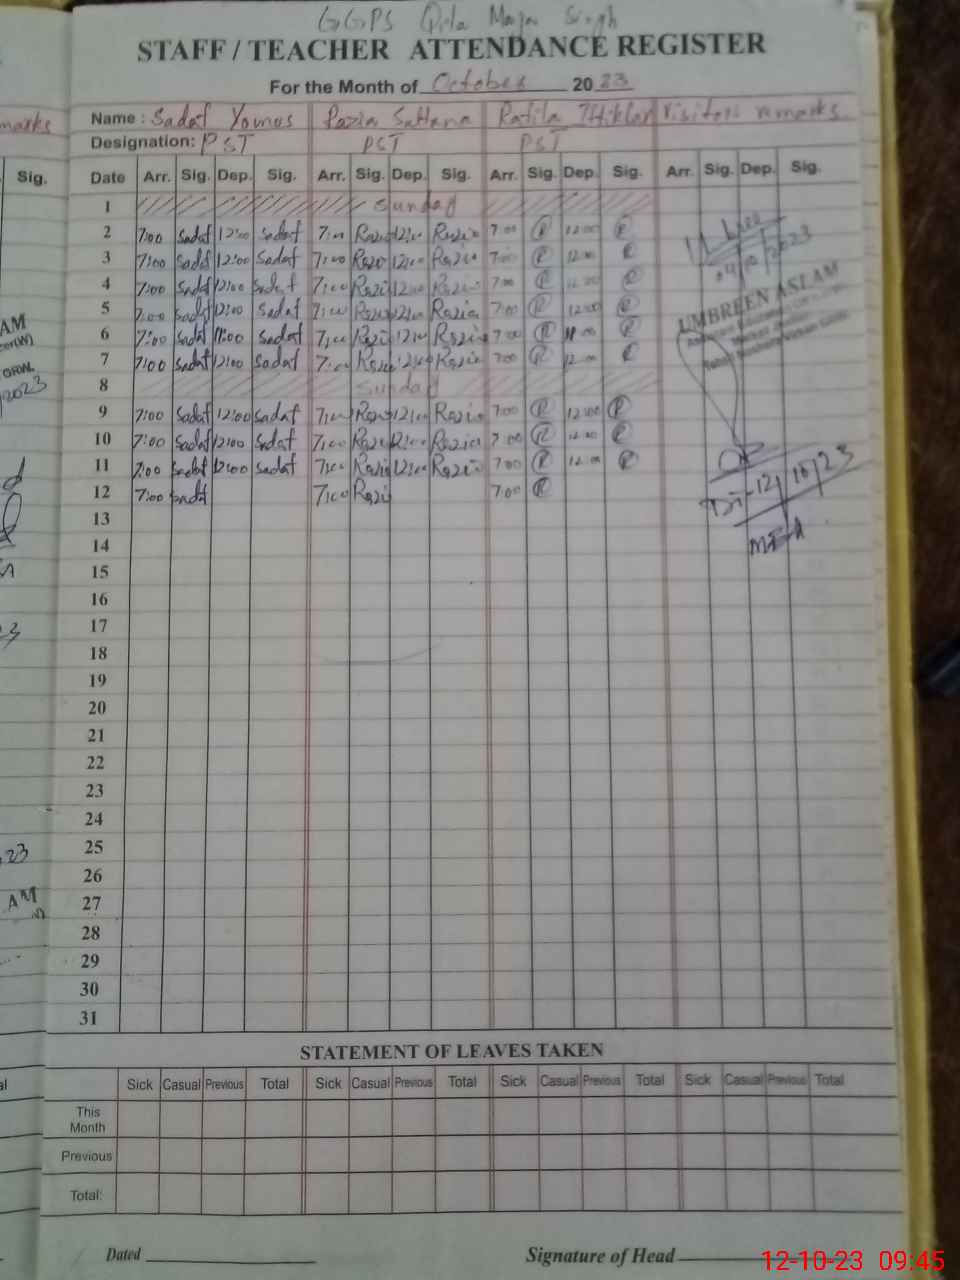 GGPS Qila Maja Singh
STAFF / TEACHER ATTENDANCE REGISTER
For the Month of October 2023
Name : Sadaf Younos Razia Sultana Iftikhar Visitors remarks.
marks
Designation: PST PST PST
Sig. Date Arr. Sig. Dep. Sig. Arr. Sig. Dep. Sig. Arr. Sig. Dep. Sig. Arr. Sig. Dep. Sig.
1 Sunday
2 7:00 Sadaf 12:00 Sadaf 7:00 Razia 12:00 Razia 7:00 R 12:00 R
3 7:00 Sadaf 12:00 Sadaf 7:00 Razia 12:00 Razia 7:00 R 12:00 R
4 7:00 Sadaf 12:00 Sadaf 7:00 Razia 12:00 Razia 7:00 R 12:00 R
5 7:00 Sadaf 12:00 Sadaf 7:00 Razia 12:00 Razia 7:00 R 12:00 R
6 7:00 Sadaf 11:00 Sadaf 7:00 Razia 12:00 Razia 7:00 R R
7 7:00 Sadaf 12:00 Sadaf 7:00 Razia 12:00 Razia 7:00 R 12:00 R
8 Sunday
9 7:00 Sadaf 12:00 Sadaf 7:00 Razia 12:00 Razia 7:00 R 12:00 R
10 7:00 Sadaf 12:00 Sadaf 7:00 Razia 12:00 Razia 7:00 R 12:00 R
11 7:00 Sadaf 12:00 Sadaf 7:00 Razia 12:00 Razia 7:00 R 12:00 R
12 7:00 Sadaf 7:00 Razia 7:00 R
13
14
15
16
17
18
19
20
21
22
23
24
25
26
27
28
29
30
31
UMBREEN ASLAM
Dt-12/10/23
MEA
AM
2023
23
AM
STATEMENT OF LEAVES TAKEN
Sick Casual Previous Total Sick Casual Previous Total Sick Casual Previous Total Sick Casual Previous Total
This Month
Previous
Total:
Dated Signature of Head
12-10-23 09:45